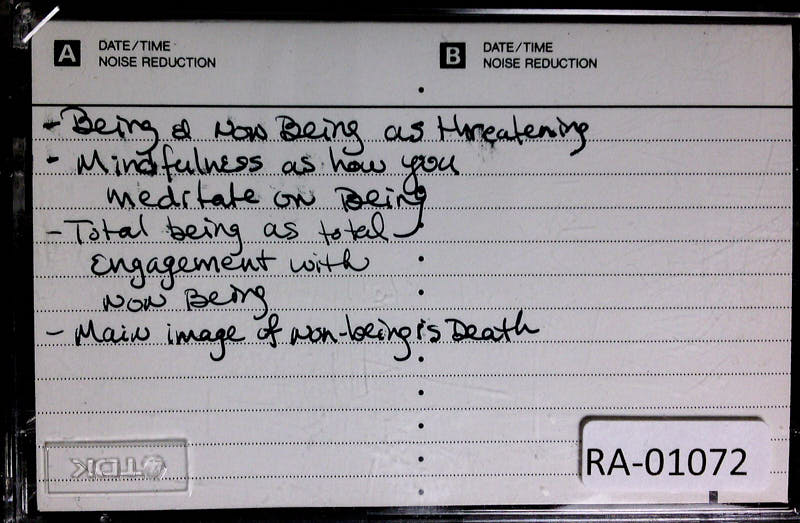 A DATE/TIME
NOISE REDUCTION
B DATE/TIME
NOISE REDUCTION
- Being & Non Being as threatening
- Mindfulness as how you
meditate on Being
- Total being as total
Engagement with
Non Being
- Main image of non-being is Death
TDK
RA-01072